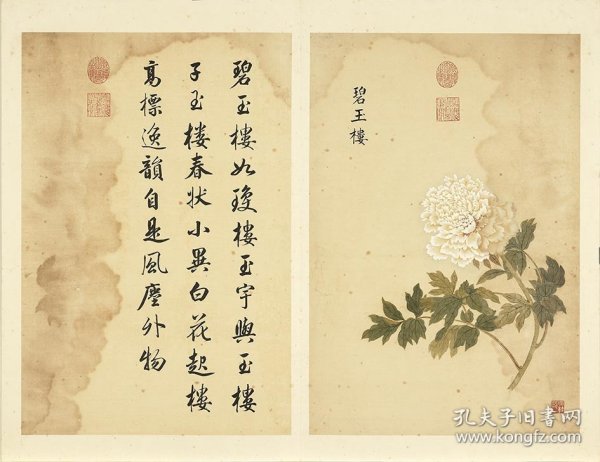 碧玉樓如瓊樓玉宇與玉樓
子玉樓春狀小異白花起樓
高標逸韻自是風塵外物
碧玉樓
孔夫子旧书网
www.kongfz.com